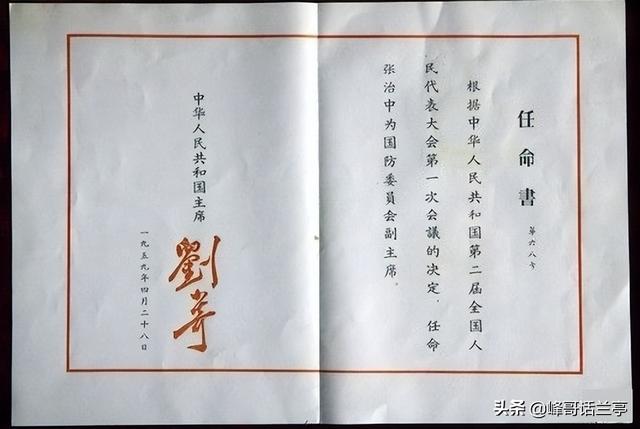 任命書
第六八号
根据中华人民共和国第二届全国人
民代表大会第一次会議的决定，任命
张治中为国防委員会副主席
中华人民共和国主席
劉少奇
一九五九年四月二十八日
头条 @峰哥话兰亭